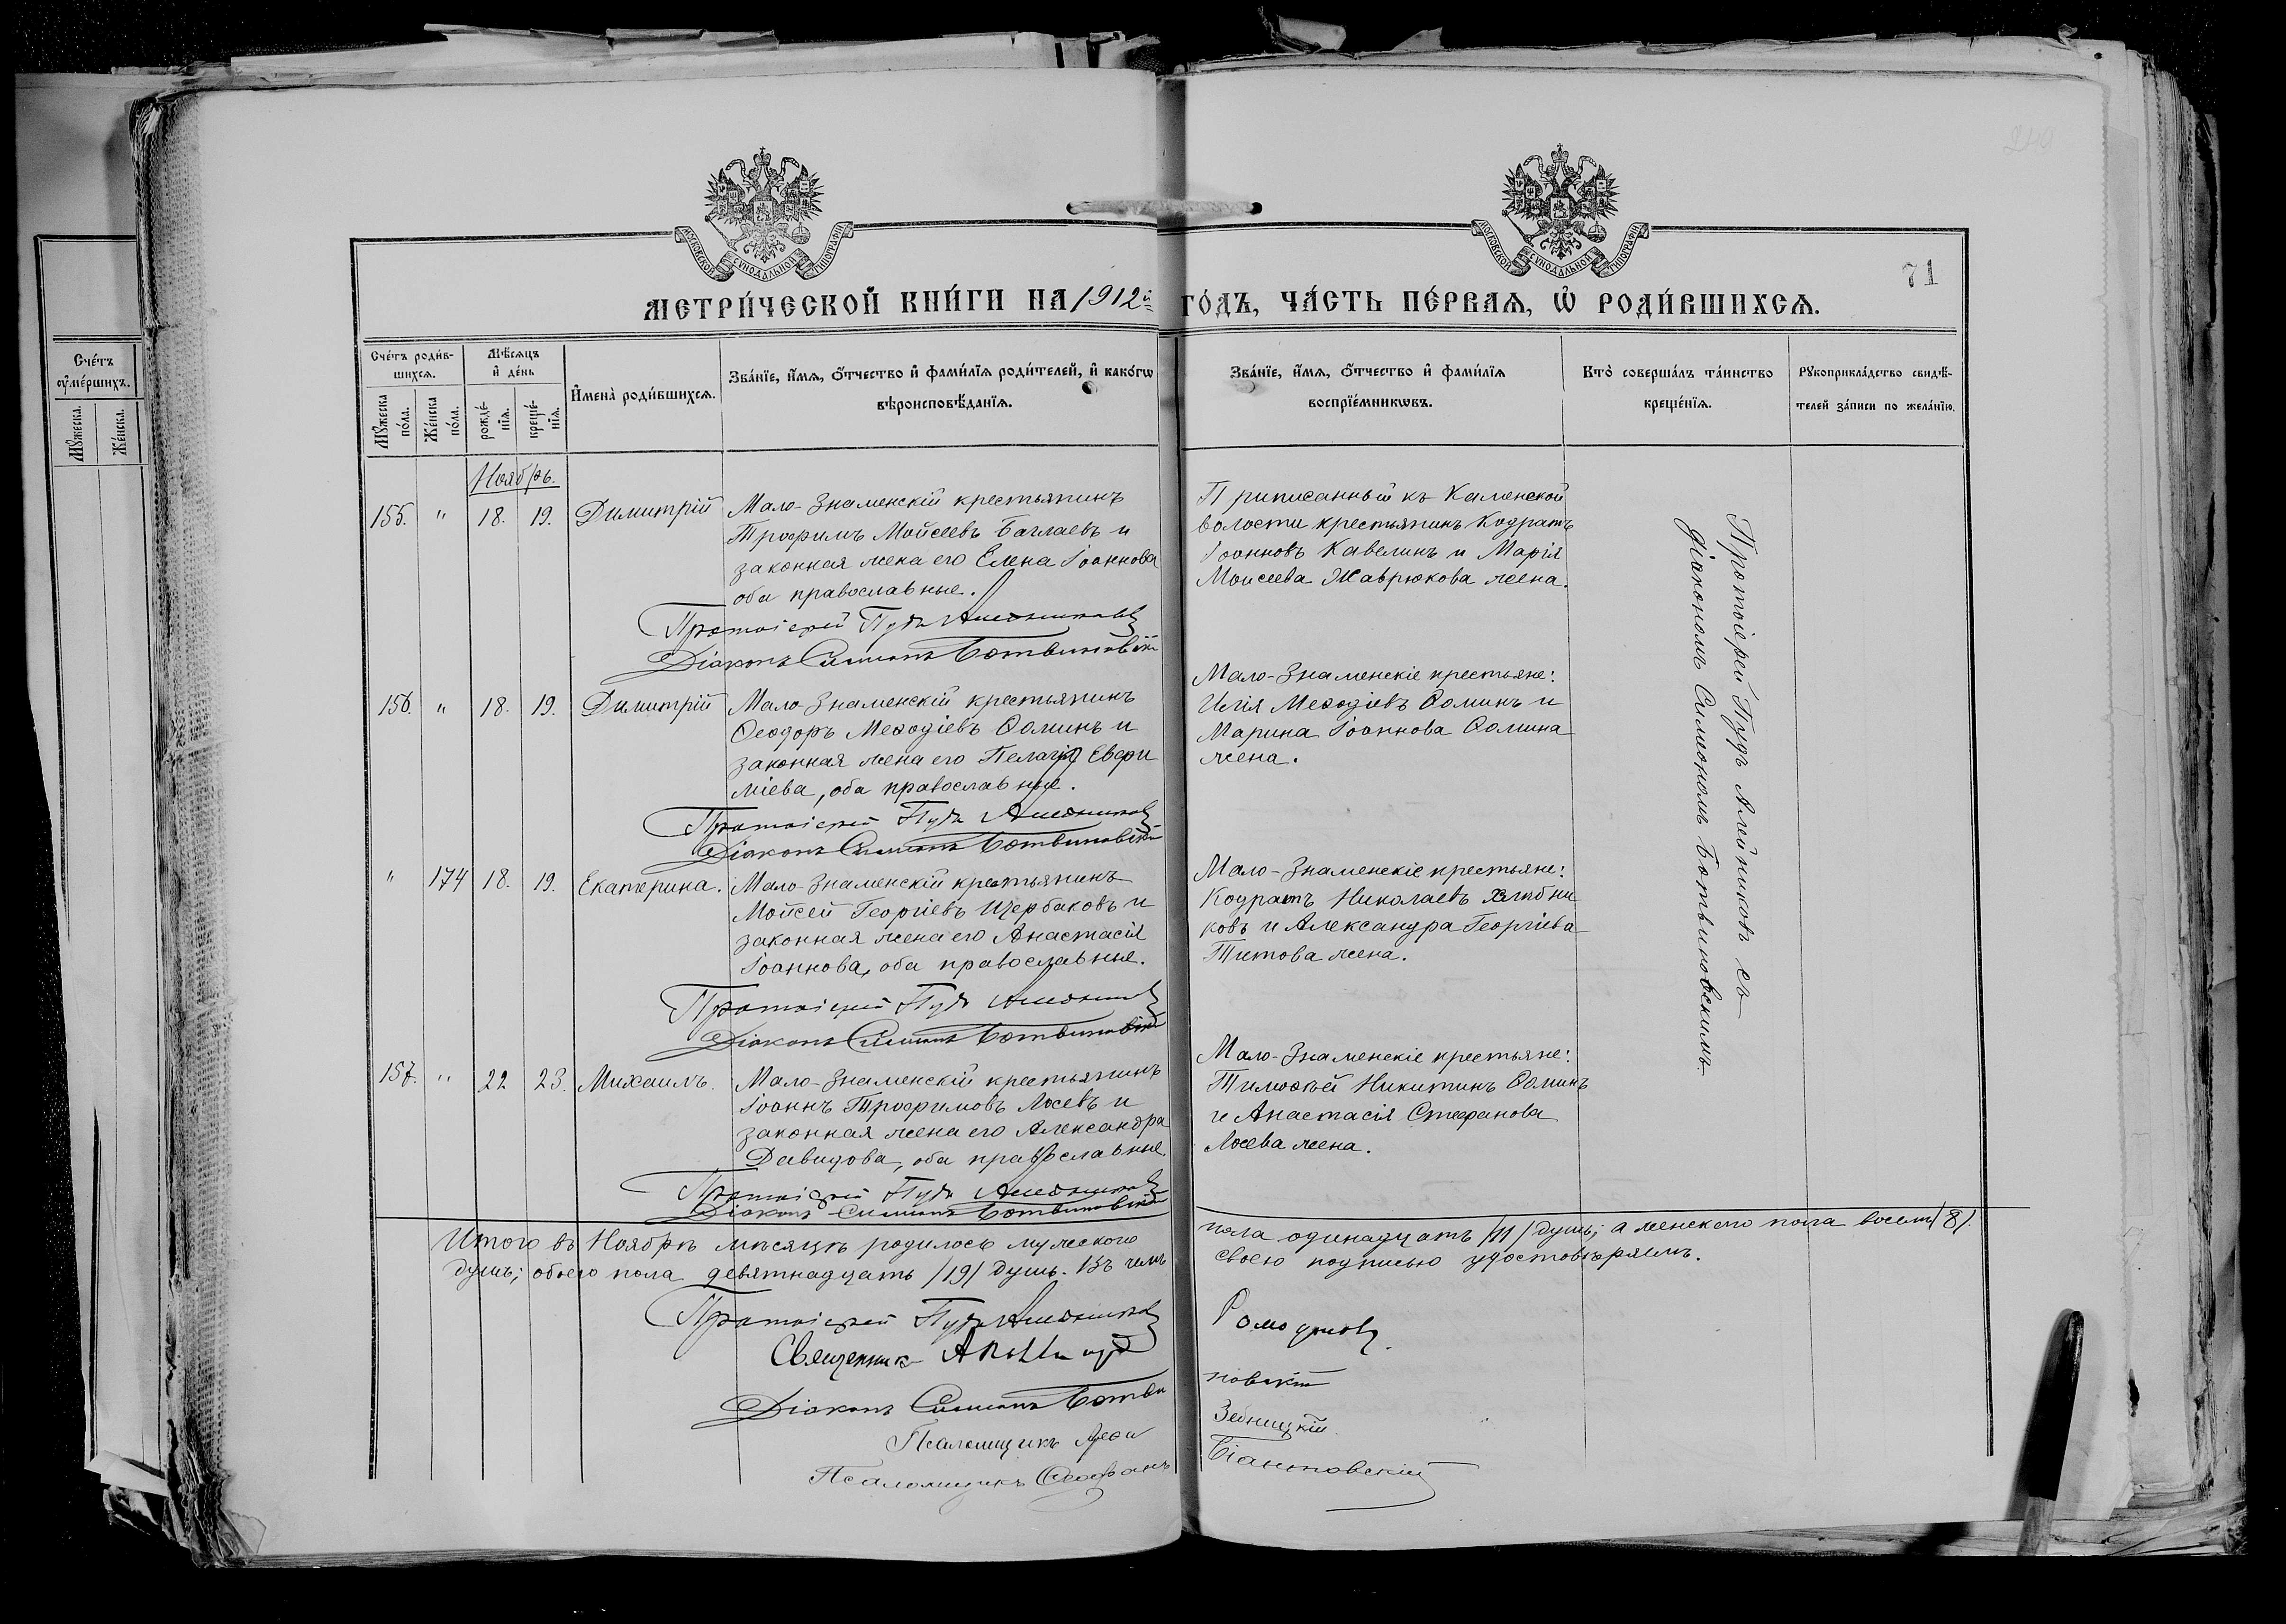 МОСКОВСКОЙ СѴНОДАЛЬНОЙ ТИПОГРАФІИ
МОСКОВСКОЙ СѴНОДАЛЬНОЙ ТИПОГРАФІИ
71
МЕТРИ́ЧЕСКОЙ КНИ́ГИ НА 1912й ГО́ДЪ, ЧА́СТЬ ПЕ́РВАЯ, Ѡ҆ РОДИ́ВШИХСЯ.
Сче́тъ
ᲂу҆ме́ршихъ.
Мꙋ́жеска.
Же́нска.
Сче́тъ роди́в-
шихся.
Мꙋ́жеска
по́ла.
Же́нска
по́ла.
Мѣ́сяцъ
и҆ де́нь
рожде́-
нїя.
креще́-
нїя.
И҆мена̀ роди́вшихся.
Зва́нїе, и҆́мя, ѻ҆́тчество и҆ фами́лїя роди́телей, и҆ како́гѡ
вѣроисповѣ́данїя.
Зва́нїе, и҆́мя, ѻ҆́тчество и҆ фами́лїя
воспрїе́мникѡвъ.
Кто̀ соверша́лъ та́инство
креще́нїя.
Рꙋкоприкла́дство свидѣ́-
телей за́писи по жела́нїю.
Ноябрь.
155. " 18. 19. Димитрій
Мало-Знаменскій крестьянинъ
Трофимъ Мойсеевъ Баглаевъ и
законная жена его Елена Іоаннова
оба православные.
Протоіерей Пудъ Алейниковъ
Діаконъ Симеонъ Ботвиновскій
Приписанный къ Каменской
волости крестьянинъ Кодратъ
Іоанновъ Кавелинъ и Марія
Моисеева Жаврюкова жена.
156. " 18. 19. Димитрій
Мало-Знаменскій крестьянинъ
Ѳеодоръ Меѳодіевъ Ѳоминъ и
законная жена его Пелагія Евфи
міева, оба православные.
Протоіерей Пудъ Алейниковъ
Діаконъ Симеонъ Ботвиновскій
Мало-Знаменскіе крестьяне:
Илія Меѳодіевъ Ѳоминъ и
Марина Іоаннова Ѳомина
жена.
" 174 18. 19. Екатерина.
Мало-Знаменскій крестьянинъ
Мойсей Георгіевъ Щербаковъ и
законная жена его Анастасія
Іоаннова, оба православные.
Протоіерей Пудъ Алейниковъ
Діаконъ Симеонъ Ботвиновскій
Мало-Знаменскіе крестьяне:
Кодратъ Николаевъ Хлѣбни
ковъ и Александра Георгіева
Титова жена.
157. " 22 23. Михаилъ.
Мало-Знаменскій крестьянинъ
Іоаннъ Трофимовъ Лосевъ и
законная жена его Александра
Давидова, оба православные.
Протоіерей Пудъ Алейниковъ
Діаконъ Симеонъ Ботвиновскій
Мало-Знаменскіе крестьяне:
Тимоѳѣй Никитинъ Ѳоминъ
и Анастасія Стефанова
Лосева жена.
Протоіерей Пудъ Алейниковъ съ
діакономъ Симеономъ Ботвиновскимъ
Итого въ Ноябрѣ мѣсяцѣ родилось мужеского пола одинадцать /11/ душъ; а женскаго пола восемь /8/.
душъ; обоего пола девятнадцать /19/ душъ. Въ чемъ своею подписью удостовѣряемъ.
Протоіерей Пудъ Алейниковъ
Священникъ
Діаконъ Симеонъ Ботви новскій
Псаломщикъ
Псаломщикъ Ѳеофанъ